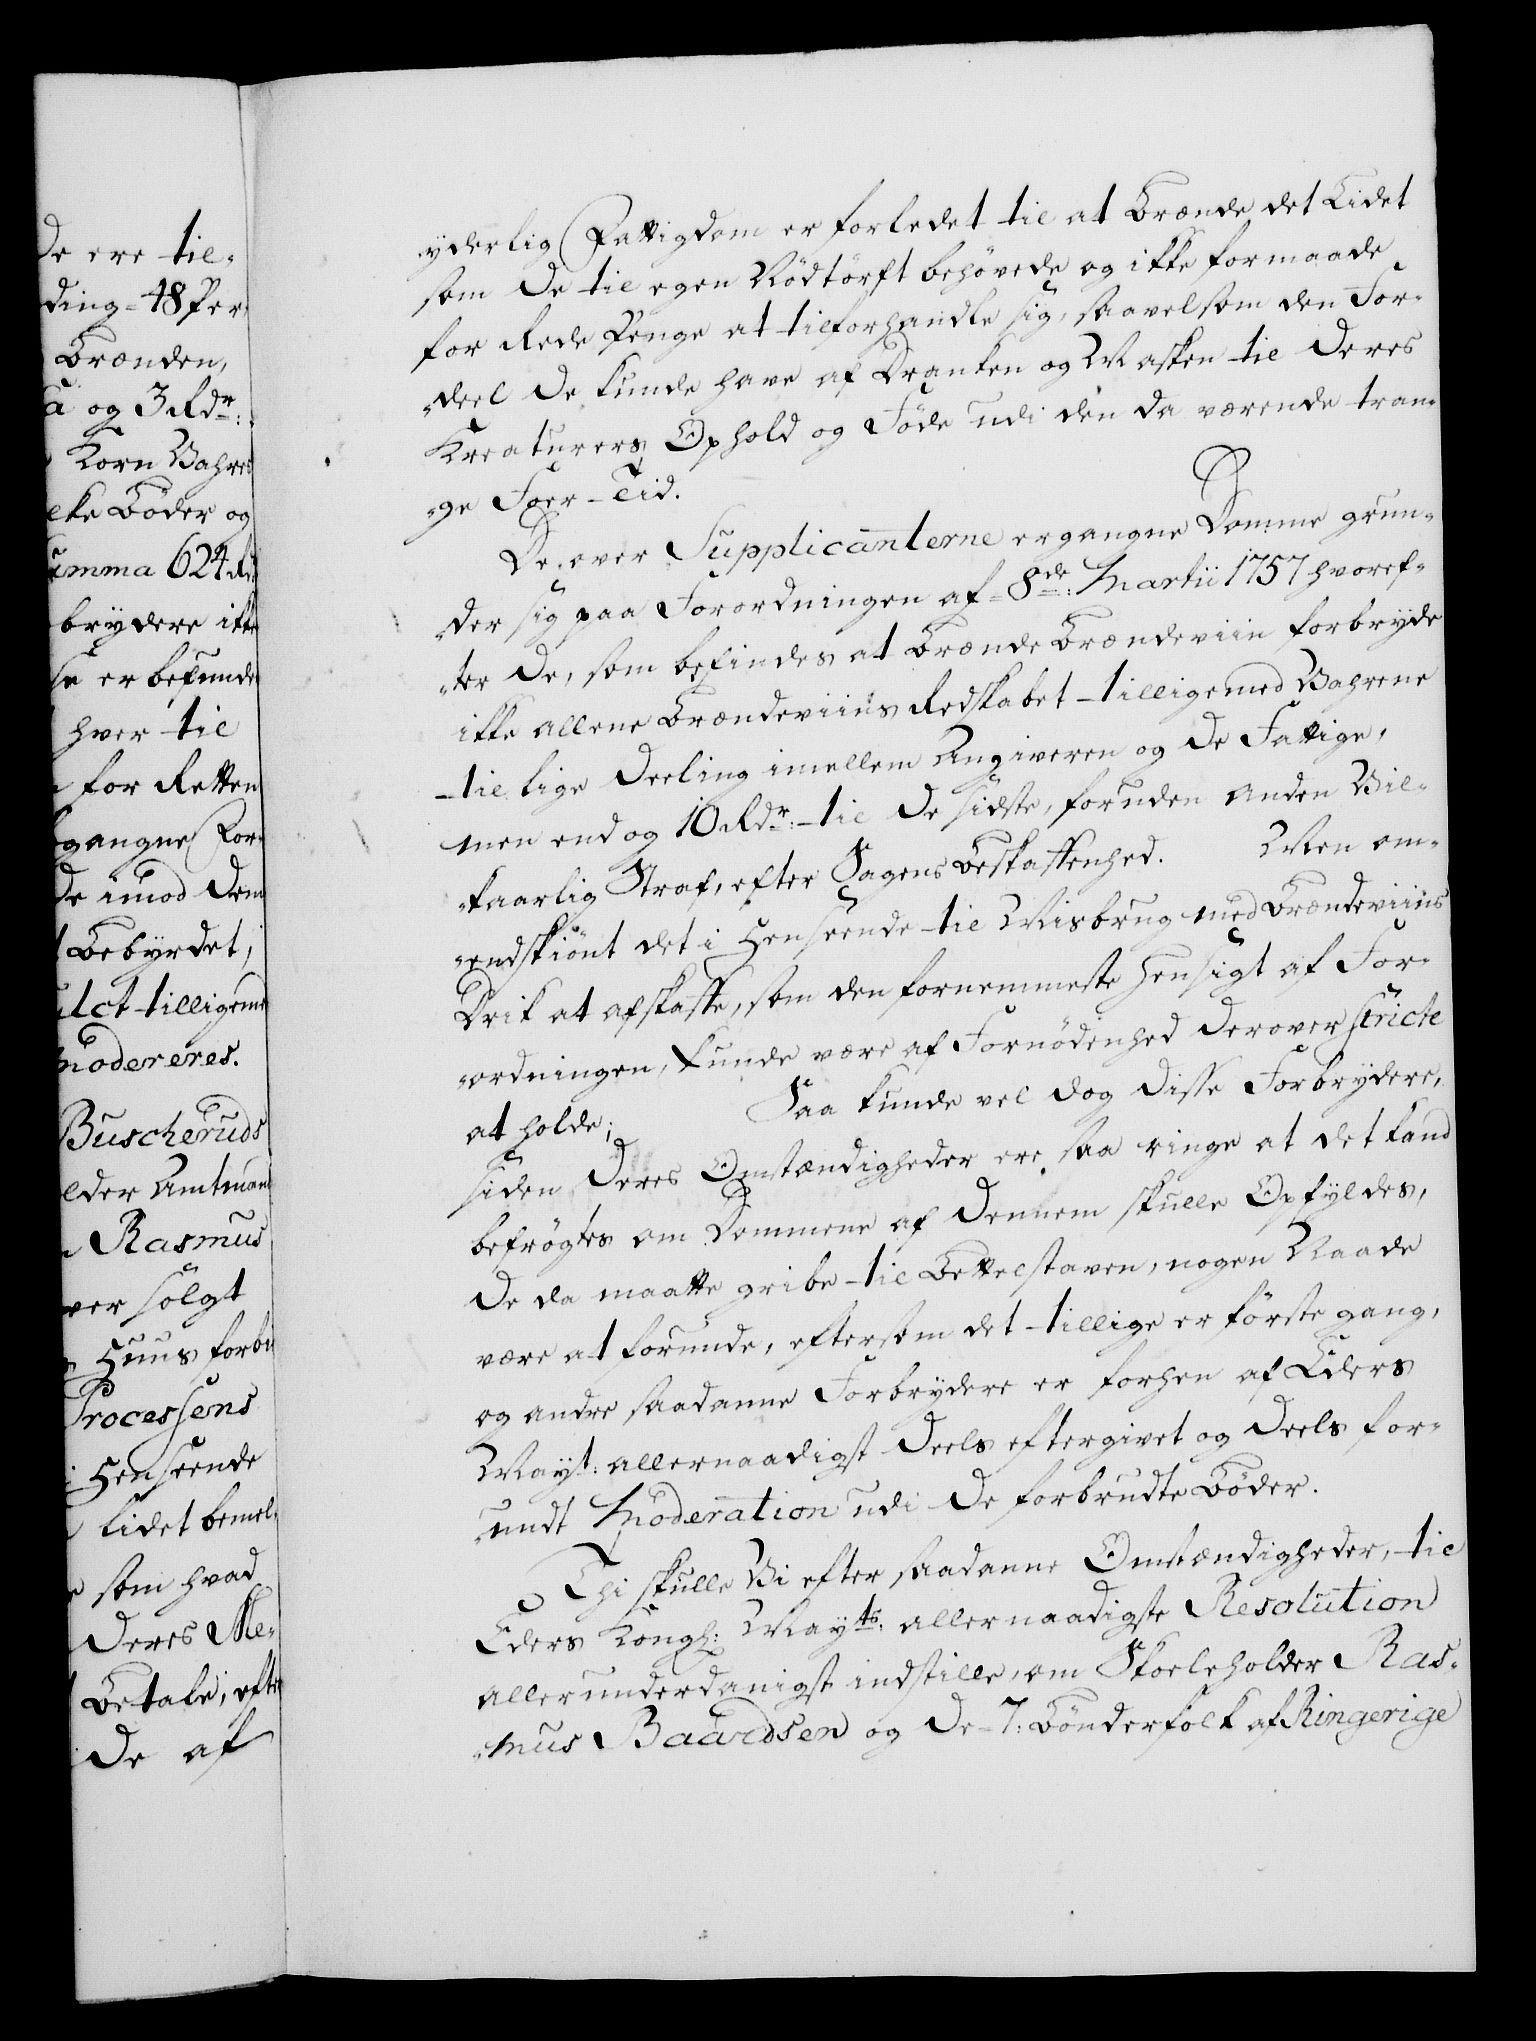 De ere til-
ding - 48 Per-
Brænden,
a og 3 Rdr:
Korn Vahre
elte Böder og
umma 624 Rd
brydere ikke
se er befunde
hver til
for Retten
gangne For-
de imod dem
Bebyrdet,
ulct tilligeme
modereres.
Buscheruds
elder Amtmand
Rasmus
ver solgt
Huus forbu
Processens
i Henseende
lidet bemel-
som hvad
Deres Me-
Betale, efter
De af
yderlig Fattigdom er forledet til at Brænde det Lidet
som De til egen Nödtörft behövede og ikke formaade
for Rede Penge at tilforhandle sig, saavelsom den For-
deel De kunde have af Dranken og Masken til Deres
Kreaturers Ophold og Föde udi den da værende tran-
ge Foer-Tid.
De over Supplicanterne ergangne Domme grun-
der sig paa Forordningen af 8de: Martii 1757 hvoref-
ter De, som befindes at Brænde Brændeviin forbryde
ikke allene Brændeviins Redskabet tilligemed Vahrene
til lige Deeling imellem Angiveren og De Fattige,
men end og 10 Rdr: til De sidste, foruden anden Vil-
kaarlig Straf, efter Sagens Beskaffenhed. Men om-
endskiönt det i Henseende til Misbrug med Brændeviins
Drik at afskaffe, som den fornemmeste Hensigt af For-
ordningen, kunde være af Fornödenhed derover stricte
at holde; Saa kunde vel dog disse Forbrydere,
siden Deres Omstændigheder ere saa ringe at det kand
befrögtes om Dommene af Dennem skulle Opfyldes,
De da maatte gribe til Bettelstaven, nogen Naade
være at forunde, eftersom det tillige er förste gang,
og andre saadanne Forbrydere er forhen af Eders
Mayt: allernaadigst Deels eftergivet og Deels for-
undt Moderation udi De forbrudte Böder.
Thi skulle Vi efter saadanne Omstændigheder, til
Eders Kongl: Mayts: allernaadigste Resolution
allerunderdanigst indstille, om Skoeleholder Ras-
mus Baardsen og De 7: Bönderfolk af Ringerige